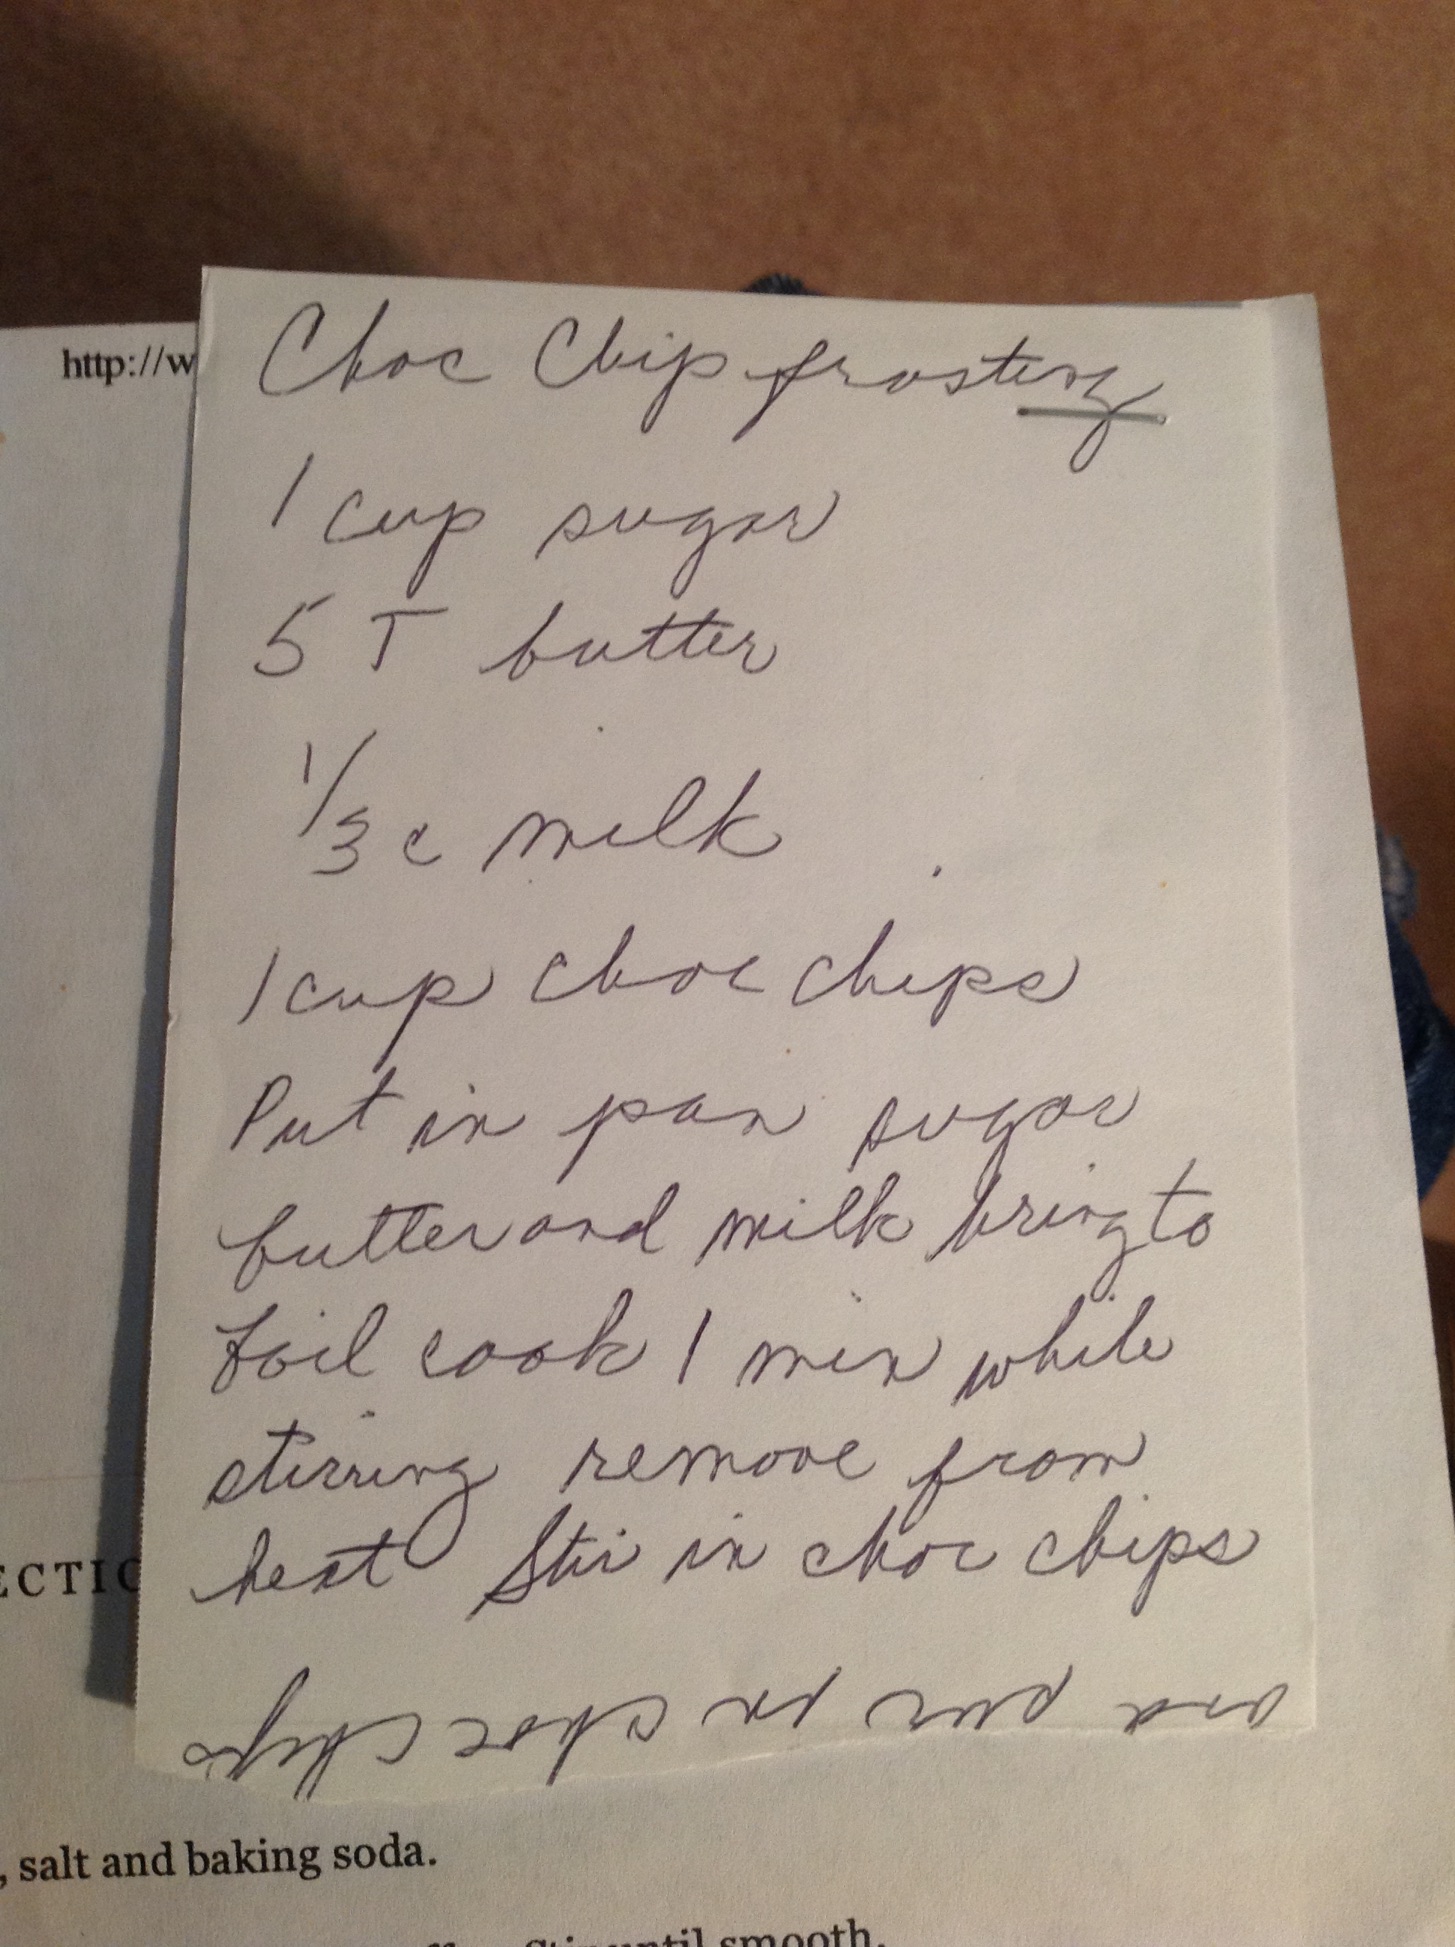 http://w
Choc Chip frosting
1 cup sugar
5 T butter
1/3 c milk
1 cup choc chips
Put in pan sugar
butter and milk bring to
boil cook 1 min while
stirring remove from
heat Stir in choc chips
in choc chips
ECTIO
, salt and baking soda.
Stir until smooth.